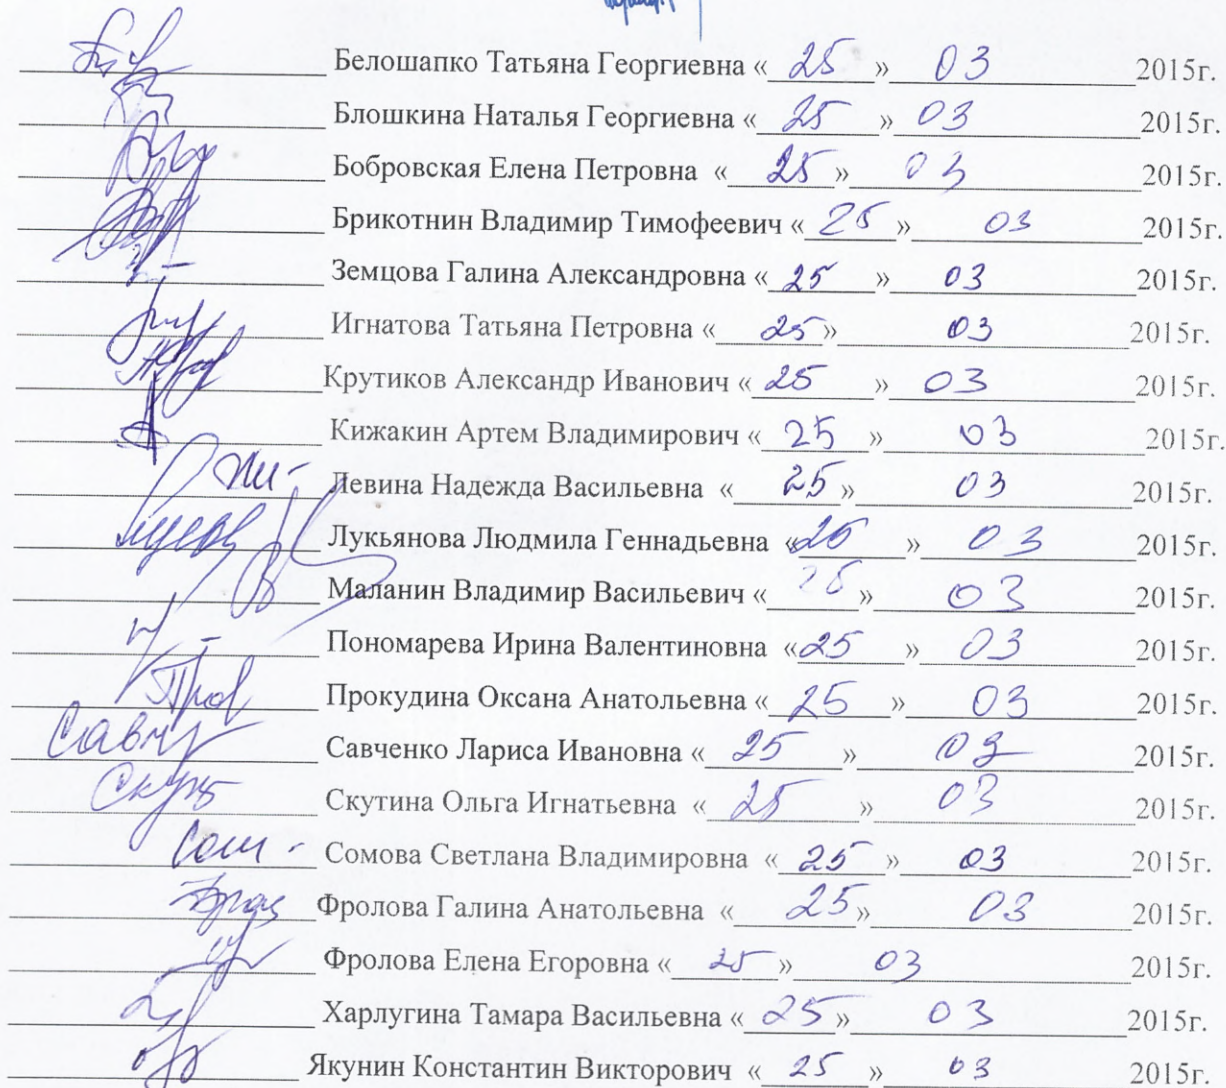 Белошапко Татьяна Георгиевна « 25 » 03 2015г.
Блошкина Наталья Георгиевна « 25 » 03 2015г.
Бобровская Елена Петровна « 25 » 03 2015г.
Брикотнин Владимир Тимофеевич « 25 » 03 2015г.
Земцова Галина Александровна « 25 » 03 2015г.
Игнатова Татьяна Петровна « 25 » 03 2015г.
Крутиков Александр Иванович « 25 » 03 2015г.
Кижакин Артем Владимирович « 25 » 03 2015г.
Левина Надежда Васильевна « 25 » 03 2015г.
Лукьянова Людмила Геннадьевна « 25 » 03 2015г.
Маланин Владимир Васильевич « 25 » 03 2015г.
Пономарева Ирина Валентиновна « 25 » 03 2015г.
Прокудина Оксана Анатольевна « 25 » 03 2015г.
Савченко Лариса Ивановна « 25 » 03 2015г.
Скутина Ольга Игнатьевна « 25 » 03 2015г.
Сомова Светлана Владимировна « 25 » 03 2015г.
Фролова Галина Анатольевна « 25 » 03 2015г.
Фролова Елена Егоровна « 25 » 03 2015г.
Харлугина Тамара Васильевна « 25 » 03 2015г.
Якунин Константин Викторович « 25 » 03 2015г.